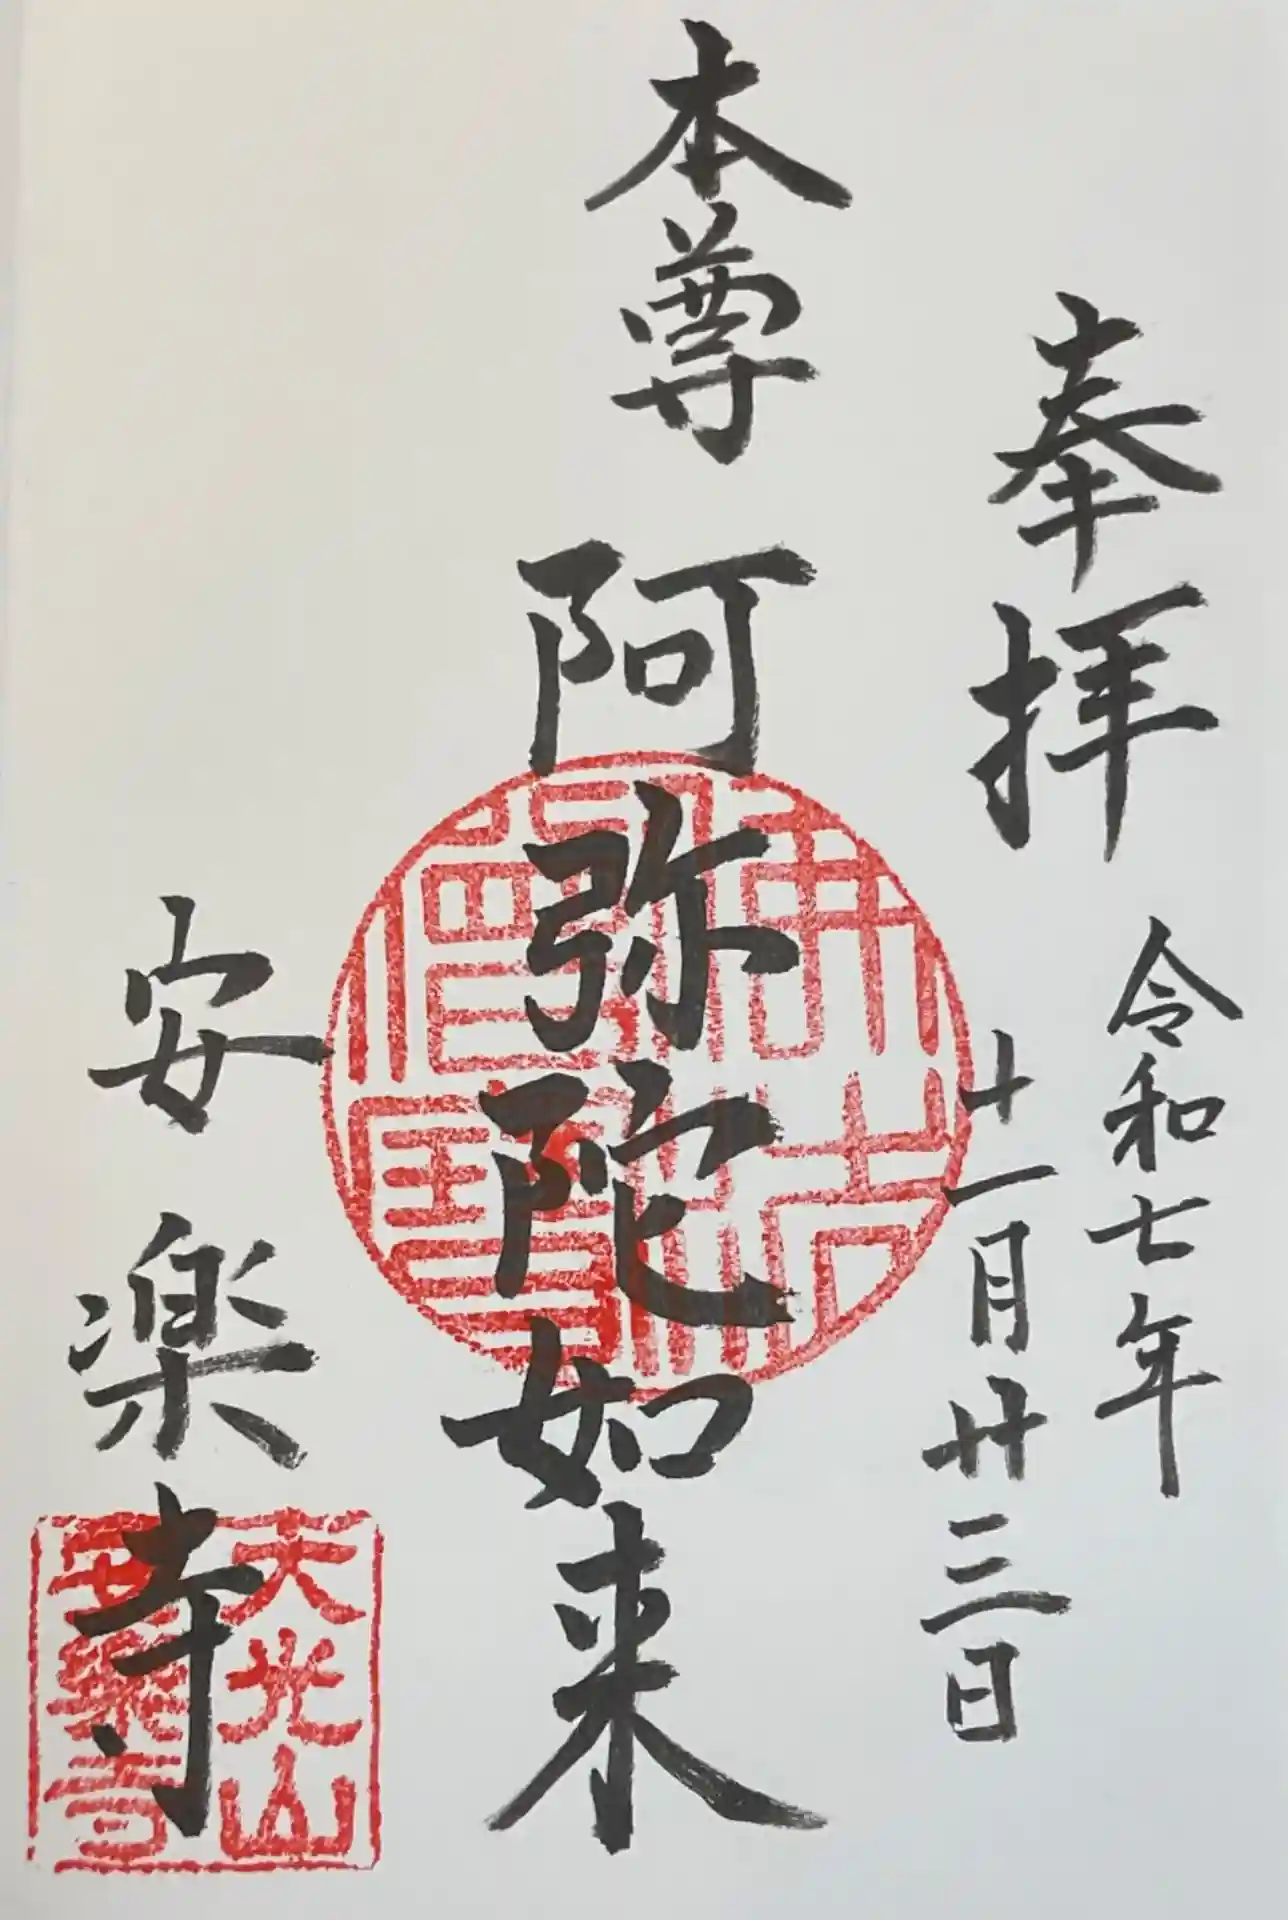 奉拝
令和七年
十一月廿三日
本尊 阿弥陀如来
佛法僧寳
安楽寺
天光山
安樂寺